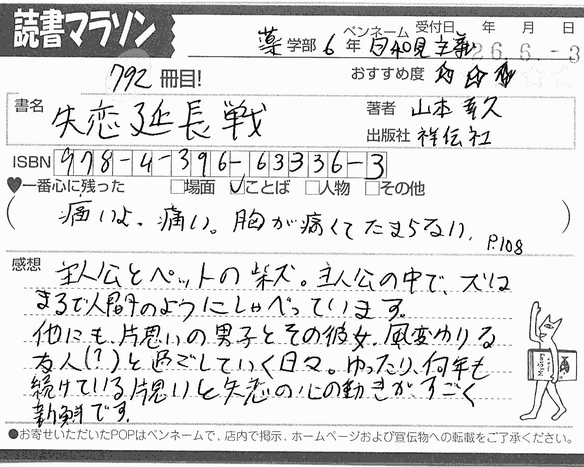 読書マラソン
薬学部 6年 ペンネーム 日和見主義 受付日 年 月 日
26.6.-3
792冊目!
おすすめ度 ☆☆☆☆☆
書名 失恋延長戦
著者 山本幸久
出版社 祥伝社
ISBN 978-4-396-63336-3
♥一番心に残った □場面 ☑ことば □人物 □その他
(痛いよ、痛い。胸が痛くてたまらない。P.108)
感想 主人公とペットの柴犬。主人公の中で、犬は
まるで人間のようにしゃべっています。
他にも、片思いの男子とその彼女、風変わりな
友人(?)と過ごしていく日々。ゆったり、何年も
続けている片思いと失恋の心の動きが、すごく
新鮮です。
●お寄せいただいたPOPはペンネームで、店内で掲示、ホームページおよび宣伝物への転載をご了承ください。